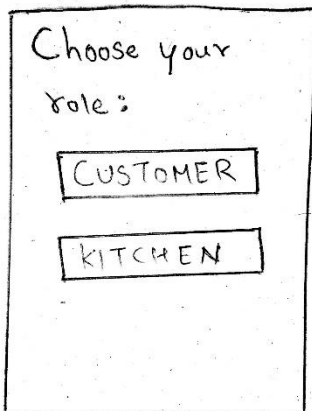 Choose your
role:
CUSTOMER
KITCHEN